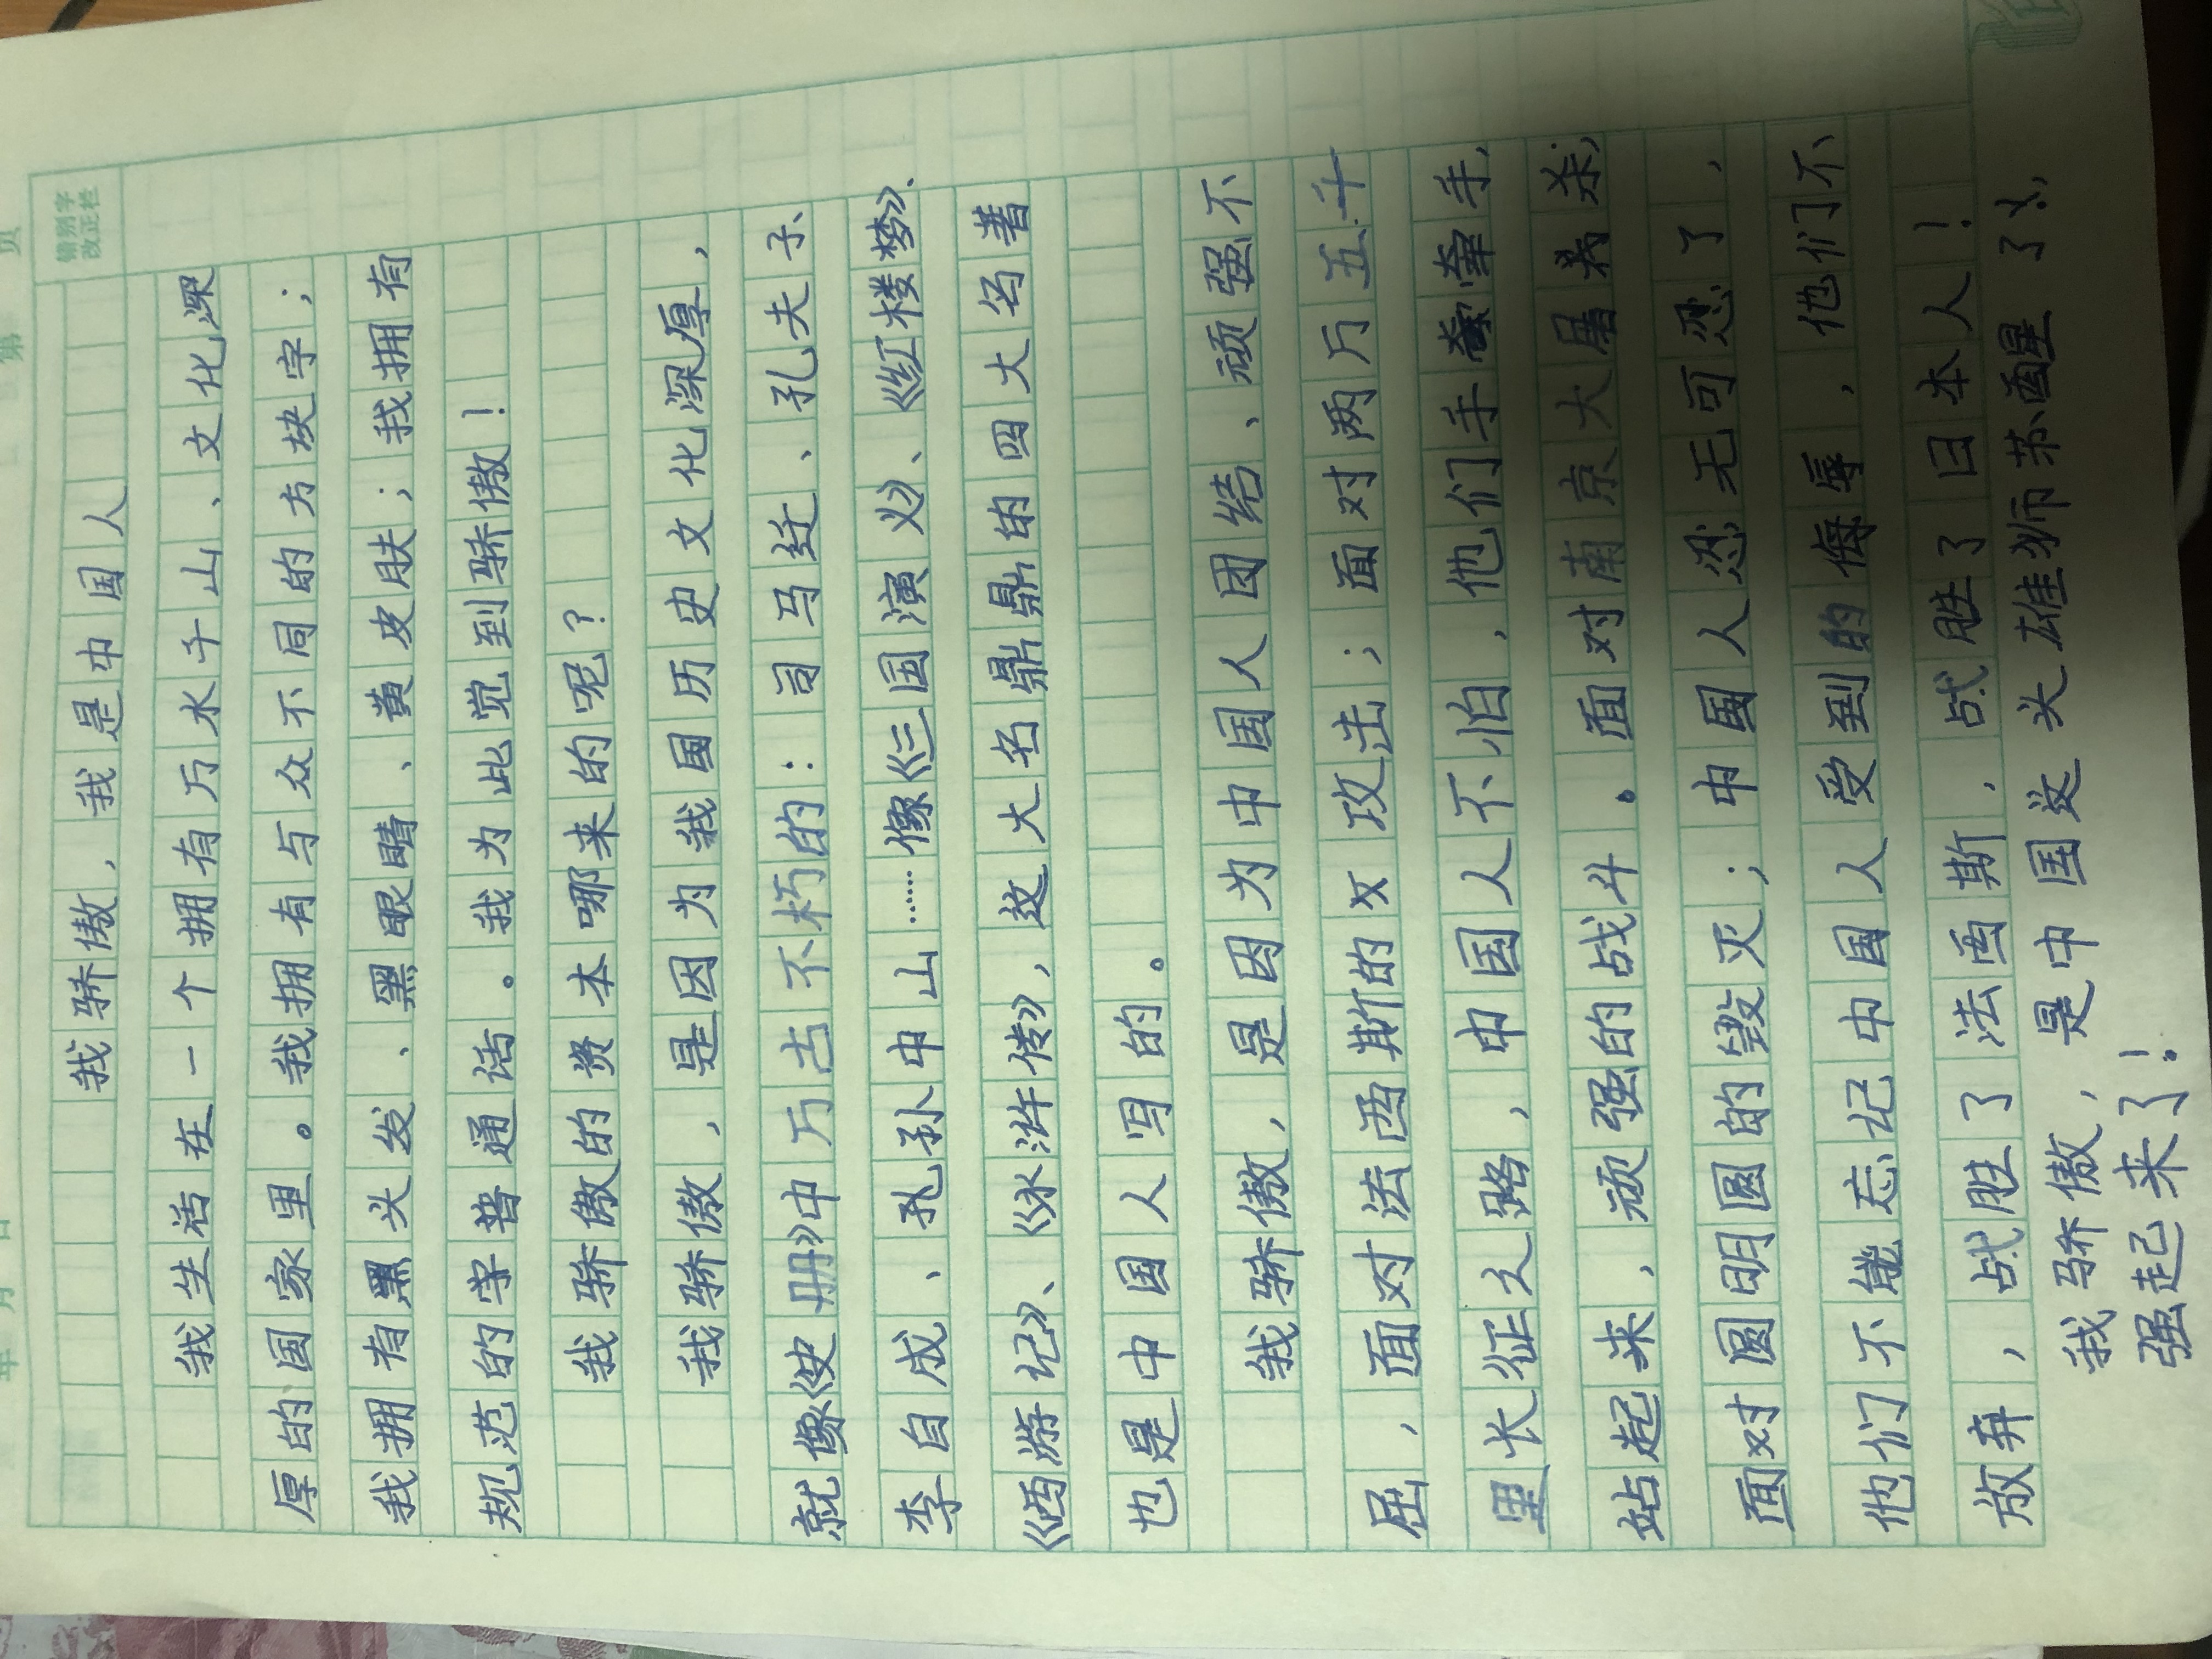 错别字
改正栏
我骄傲，我是中国人
我生活在一个拥有万水千山、文化深
厚的国家里。我拥有与众不同的方块字；
我拥有黑头发、黑眼睛、黄皮肤；我拥有
规范的字普通话。我为此觉到骄傲！
我骄傲的资本哪来的呢？
我骄傲，是因为我国历史文化深厚，
就像《史册》中万古不朽的：司马迁、孔夫子、
李自成、孔孙中山……像《三国演义》、《红楼梦》、
《西游记》、《水浒传》，这大名鼎鼎的四大名著
也是中国人写的。
我骄傲，是因为中国人团结、顽强不
屈，面对法西斯的攻击；面对两万五千
里长征之路，中国人不怕，他们手牵手，
站起来，顽强的战斗。面对南京大屠杀，
面对圆明圆的毁灭；中国人忍无可忍了，
他们不能忘记中国人受到的侮辱，他们不
放弃，战胜了法西斯，战胜了日本人！
我骄傲，是中国这头雄狮苏醒了，
强起来了！